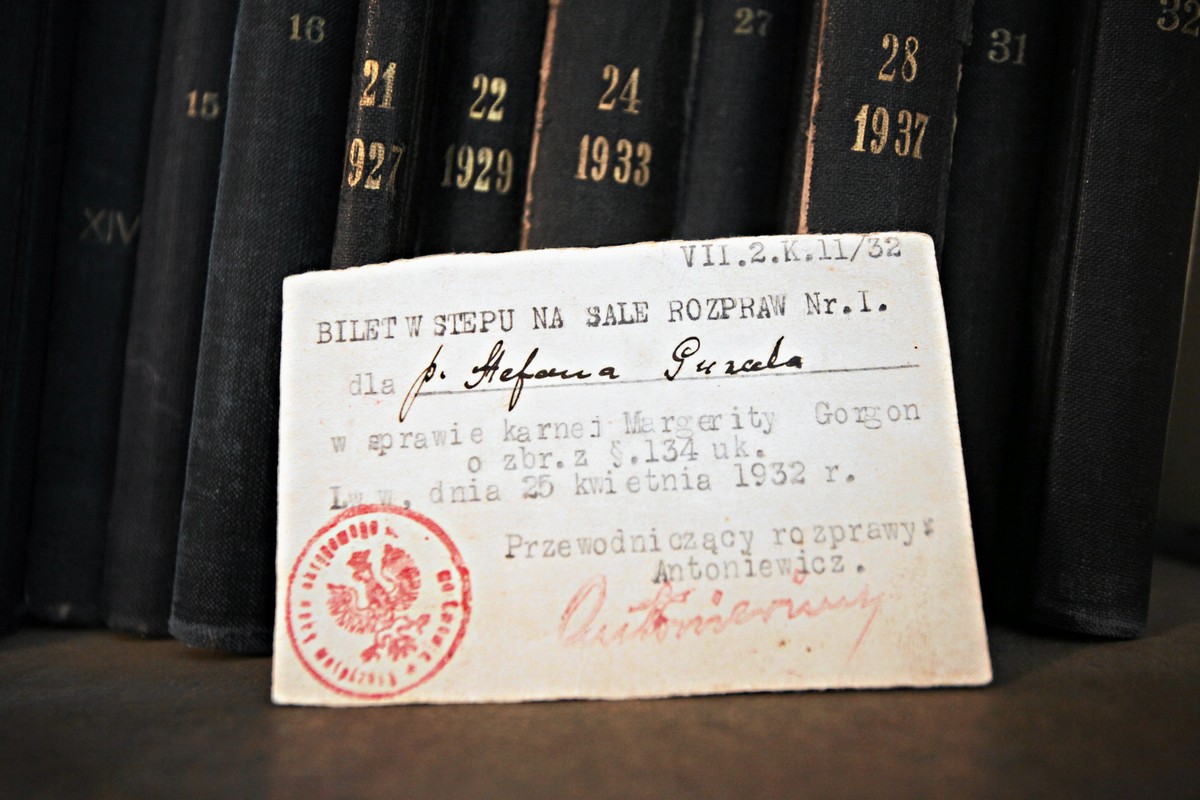 16
27
32
15
21
927
22
1929
24
1933
28
1937
31
XIV
VII.2.K.11/32
BILET W STEPU NA SALE ROZPRAW Nr.I.
dla p. Stefana
w sprawie karnej Margerity Gorgon
o zbr.z §.134 uk.
Lw w, dnia 25 kwietnia 1932 r.
Przewodniczący rozprawy:
Antoniewicz.
Antoniewicz